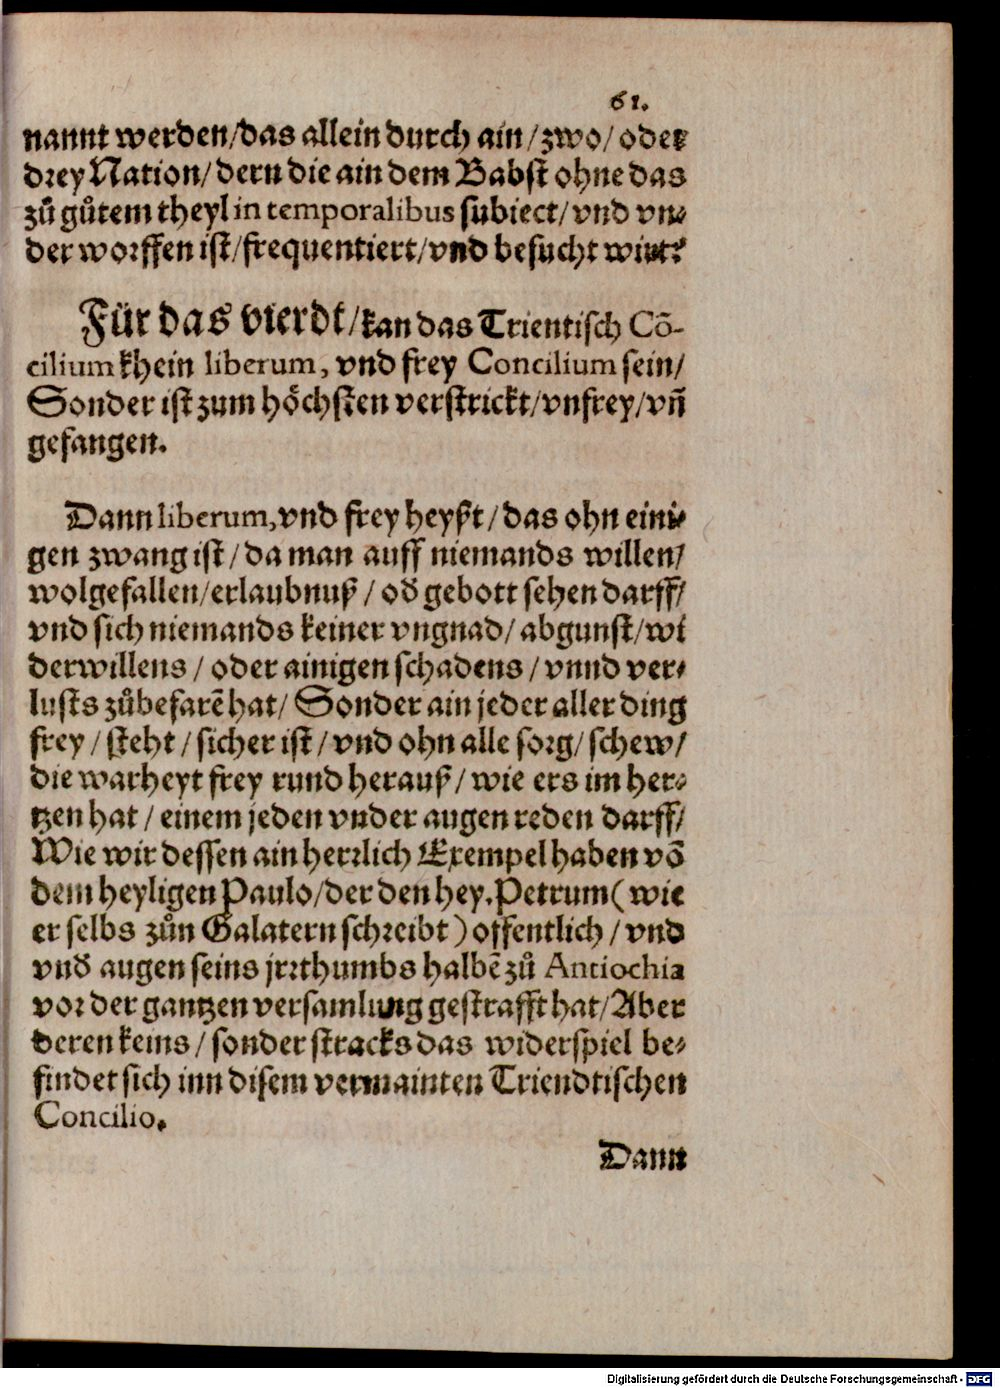 61.
nannt werden/das allein durch ain/zwo/oder
drey Nation/dern die ain dem Babst ohne das
zů gůtem theyl in temporalibus subiect/vnd vn⸗
der worffen ist/frequentiert/vnd besucht wirt?
Für das vierdt/kan das Trientisch Cõ-
cilium khein liberum, vnd frey Concilium sein/
Sonder ist zum hoͤchsten verstrickt/vnfrey/vñ
gefangen.
Dann liberum, vnd frey heyßt/das ohn eini⸗
gen zwang ist/da man auff niemands willen/
wolgefallen/erlaubnuß/od̕ gebott sehen darff/
vnd sich niemands keiner vngnad/abgunst/wi
derwillens/oder ainigen schadens/vnnd ver⸗
lusts zůbefarẽ hat/Sonder ain jeder aller ding
frey/steht/sicher ist/vnd ohn alle sorg/schew/
die warheyt frey rund herauß/wie ers im her⸗
tzen hat/einem jeden vnder augen reden darff/
Wie wir dessen ain herrlich Exempel haben võ
dem heyligen Paulo/der den hey. Petrum (wie
er selbs zůn Galatern schreibt) offentlich/vnd
vnd̕ augen seins jrrthumbs halbẽ zů Antiochia
vor der gantzen versamlung gestrafft hat/Aber
deren keins/sonder stracks das widerspiel be⸗
findet sich inn disem vermainten Triendtischen
Concilio.
Dann
Digitalisierung gefördert durch die Deutsche Forschungsgemeinschaft - DFG